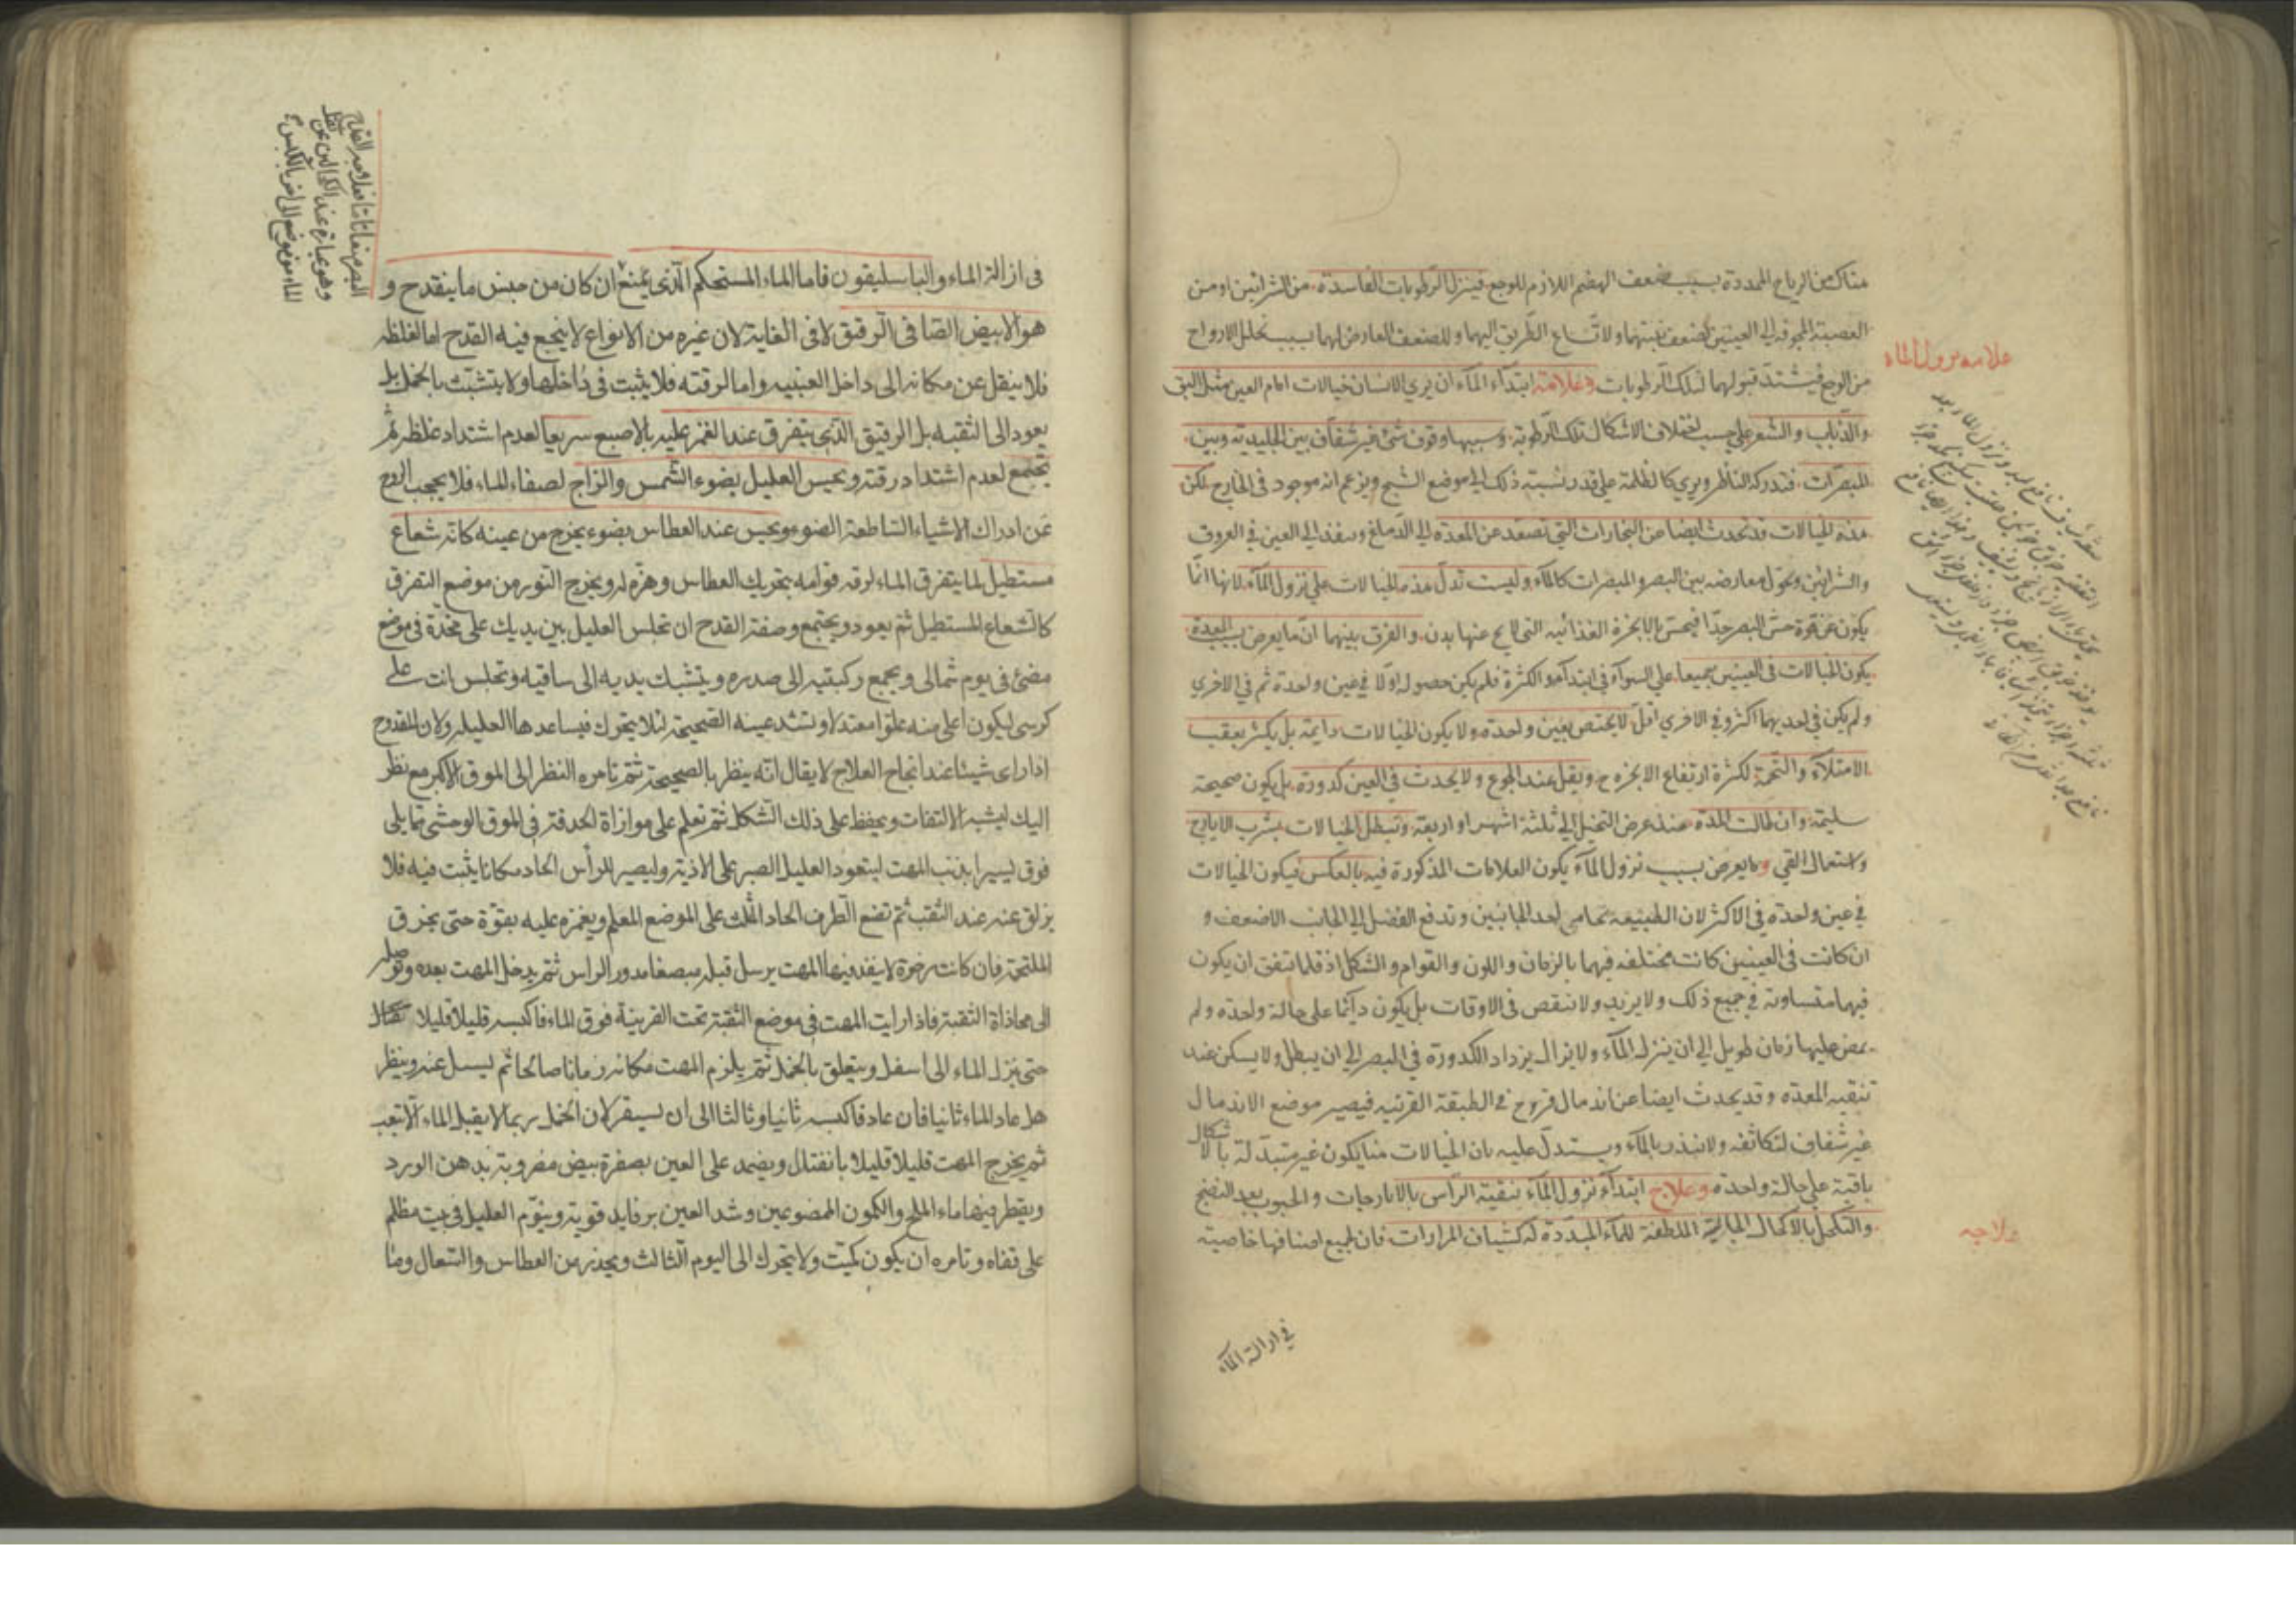 هناك من الرياح الممددة بسبب ضعف الهضم اللازم للوجع فينزل الرطوبات الفاسدة من الشرائين او من
العصبة المجوفة الى العينين لضعف بنيتهما ولاتساع الطريق اليهما وللضعف العارض لهما بسبب تحليل الارواح
علامة نزول الماء
من الوجع فيشتد قبولهما لتلك الرطوبات وعلامة ابتداء الماء ان يرى الانسان خيالات امام العين مثل البق
والذباب والشعر على حسب اختلاف الاشكال تلك الرطوبة وسببها وقوف شئ غير شفاف بين الجليدية وبين
المبصرات فتدركه الناظر ويرى كالظلمة على قدر نسبته ذلك الى موضع الشبح ويزعم انه موجود فى الخارج لكن
هذه الخيالات قد تحدث ايضا من البخارات التى تصعد عن المعدة الى الدماغ وينفذ الى العين فى العروق
والشرائين وتحول معارضه بين البصر والمبصرات كالماء وليست تدل هذه الخيالات على نزول الماء لانها انما
يكون عن قوة حس البصر جدا فيحس بالابخرة الغذائيه التى لا يخ عنها بدن والفرق بينهما ان ما يعرض بسبب المعدة
يكون الخيالات فى العينين جميعا على السواء فى ابتداء والكثرة فلم يكن حصوله اولا فى عين واحدة ثم فى الاخرى
ولم يكن فى احديهما اكثر وفى الاخرى اقل لا يختص بعين واحدة ولا يكون الخيالات دايمة بل يكثر بعقب
الامتلاء والتخمة لكثرة ارتفاع الابخره ح ويقل عند الجوع ولا يحدث فى العين كدورة بل يكون صحيحة
سليمة وان طالت المدة عند عرض التخيل الى ثلثة اشهر او اربعة وتبطل الخيالات بشرب الايارج
واستعمال القى وما يعرض بسبب نزول الماء يكون العلامات المذكورة فيه بالعكس فيكون الخيالات
فى عين واحدة فى الاكثر لان الطبيعة تحامى احد الجانبين وتدفع الفضل الى الجانب الاضعف و
ان كانت فى العينين كانت مختلفه فيهما بالزمان واللون والقوام والشكل اذ قلما تتفق ان يكون
فيهما متساوية فى جميع ذلك ولا يزيد ولا ينقص فى الاوقات بل يكون دائما على حالة واحدة ولم
يمض عليها زمان طويل الى ان ينزل الماء ولا يزال يزداد الكدورة فى البصر الى ان يبطل ولا يسكن عند
تنقيه المعدة وقد يحدث ايضا عن اندمال قروح فى الطبقة القرنيه فيصير موضع الاندمال
غير شفاف لتكاثفه ولا ينذر بالماء ويستدل عليه بان الخيالات هنا يكون غير متبدلة بالاشكال
باقية على حالة واحدة وعلاج ابتداء نزول الماء بتنقية الراس بالايارجات والحبوب بعد النضج
علاجه
والتكحل بالاكحال الجالية الملطفة للماء المبددة له كشياف المرارات فان لجميع اصنافها خاصية
فى ازالة الماء
فى ازالة الماء والباسليقون فاما الماء المستحكم الذى يمنع ان كان من جنس ما ينقدح و
هو الابيض الصافى الرقيق لا فى الغاية لان غيره من الانواع لا ينجع فيه القدح اما الغلظه
فلا ينقل عن مكانه الى داخل العنبيه واما لرقته فلا يثبت فى داخلها ولا يتشبث بالخمل بل
يعود الى الثقبه بل الرقيق الذى يتفرق عند الغمز عليه بالاصبع سريعا لعدم اشتداد غلظه ثم
تجتمع لعدم اشتداد رقته ويحس العليل بضوء الشمس والزاج لصفاء الماء فلا يحجب الروح
عن ادراك الاشياء الساطعة الضوء ويحس عند العطاس بضوء يخرج من عينه كانه شعاع
مستطيل لما يتفرق الماء لرقه قوامه بتحريك العطاس وهزه له ويخرج النور من موضع التفرق
كالشعاع المستطيل ثم يعود ويجتمع وصفة القدح ان تجلس العليل بين يديك على مخدة فى موضع
مضئ فى يوم شمالى ويجمع ركبتيه الى صدره ويتشبك يديه الى ساقيه وتجلس انت على
كرسى ليكون اعلى منه علوا معتدلا وتشد عينه الصحيحة لئلا يتحرك فيساعدها العليله ولان المقدوح
اذا راى شيئا عند انجاح العلاج لا يقال انه ينظر بالصحيحة ثم تامره النظر الى الموق الاكبر مع نظر
اليك ليشبه الالتفات ويحفظ على ذلك الشكل ثم تعلم على موازاة الحدقة فى الموق الوحشى مما يلى
فوق يسيرا بذنب المهت ليتعود العليل الصبر على الاذية وليصير للرأس الحاد مكانا يثبت فيه فلا
يزلق عنه عند الثقب ثم تضع الطرف الحاد المثلث على الموضع المعلم ويغمزه عليه بقوة حتى يخرق
الملتحمة فان كانت رخوة لا ينفذ فيها المهت يرسل قبله مبضعا مدور الراس ثم يدخل المهت بعده وتوصله
الى محاذاة الثقبة فاذا رايت المهت فى موضع الثقبة تحت القرنية فوق الماء فاكبسه قليلا قليلا
حتى ينزل الماء الى اسفل ويتعلق بالخمل ثم يلزم المهت مكانه زمانا صالحا ثم يسيل عنه وينظر
هل عاد الماء ثانيا فان عاد فاكبسه ثانيا وثالثا الى ان يستقر لان الخمل ربما لا يقبل الماء الا بتعب
ثم يخرج المهت قليلا قليلا بانفتال ويضمد على العين بصفرة بيض مضروبة بدهن الورد
ويقطر فيها ماء الملح والكمون الممضوغين وشد العين برفايد قوية وينوم العليل فى بيت مظلم
على قفاه وتامره ان يكون كميت ولا يتحرك الى اليوم الثالث ويحذره من العطاس والسعال وما
وهو عبارة عند الكحالين عن نقل
الماء من موضع الى اخر بالكبس